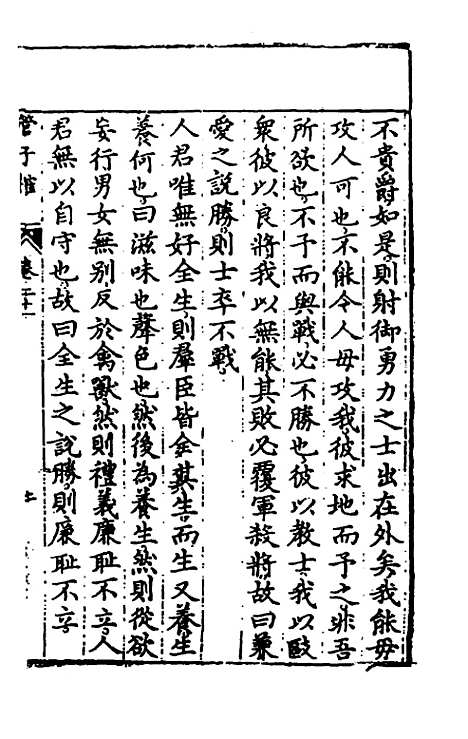 不貴爵如是則射御勇力之士出在外矣我能毋
攻人可也不能令人毋攻我彼求地而予之非吾
所欲也不予而與戰必不勝也彼以教士我以敺
衆彼以良將我以無能其敗必覆軍殺將故曰兼
愛之説勝則士卒不戰
人君唯無好全生則羣臣皆全其生而生又養生
養何也曰滋味也聲色也然後為養生然則從欲
妄行男女無别反於禽獸然則禮義廉恥不立人
君無以自守也故曰全生之説勝則廉恥不立
管子榷 卷二十一 七